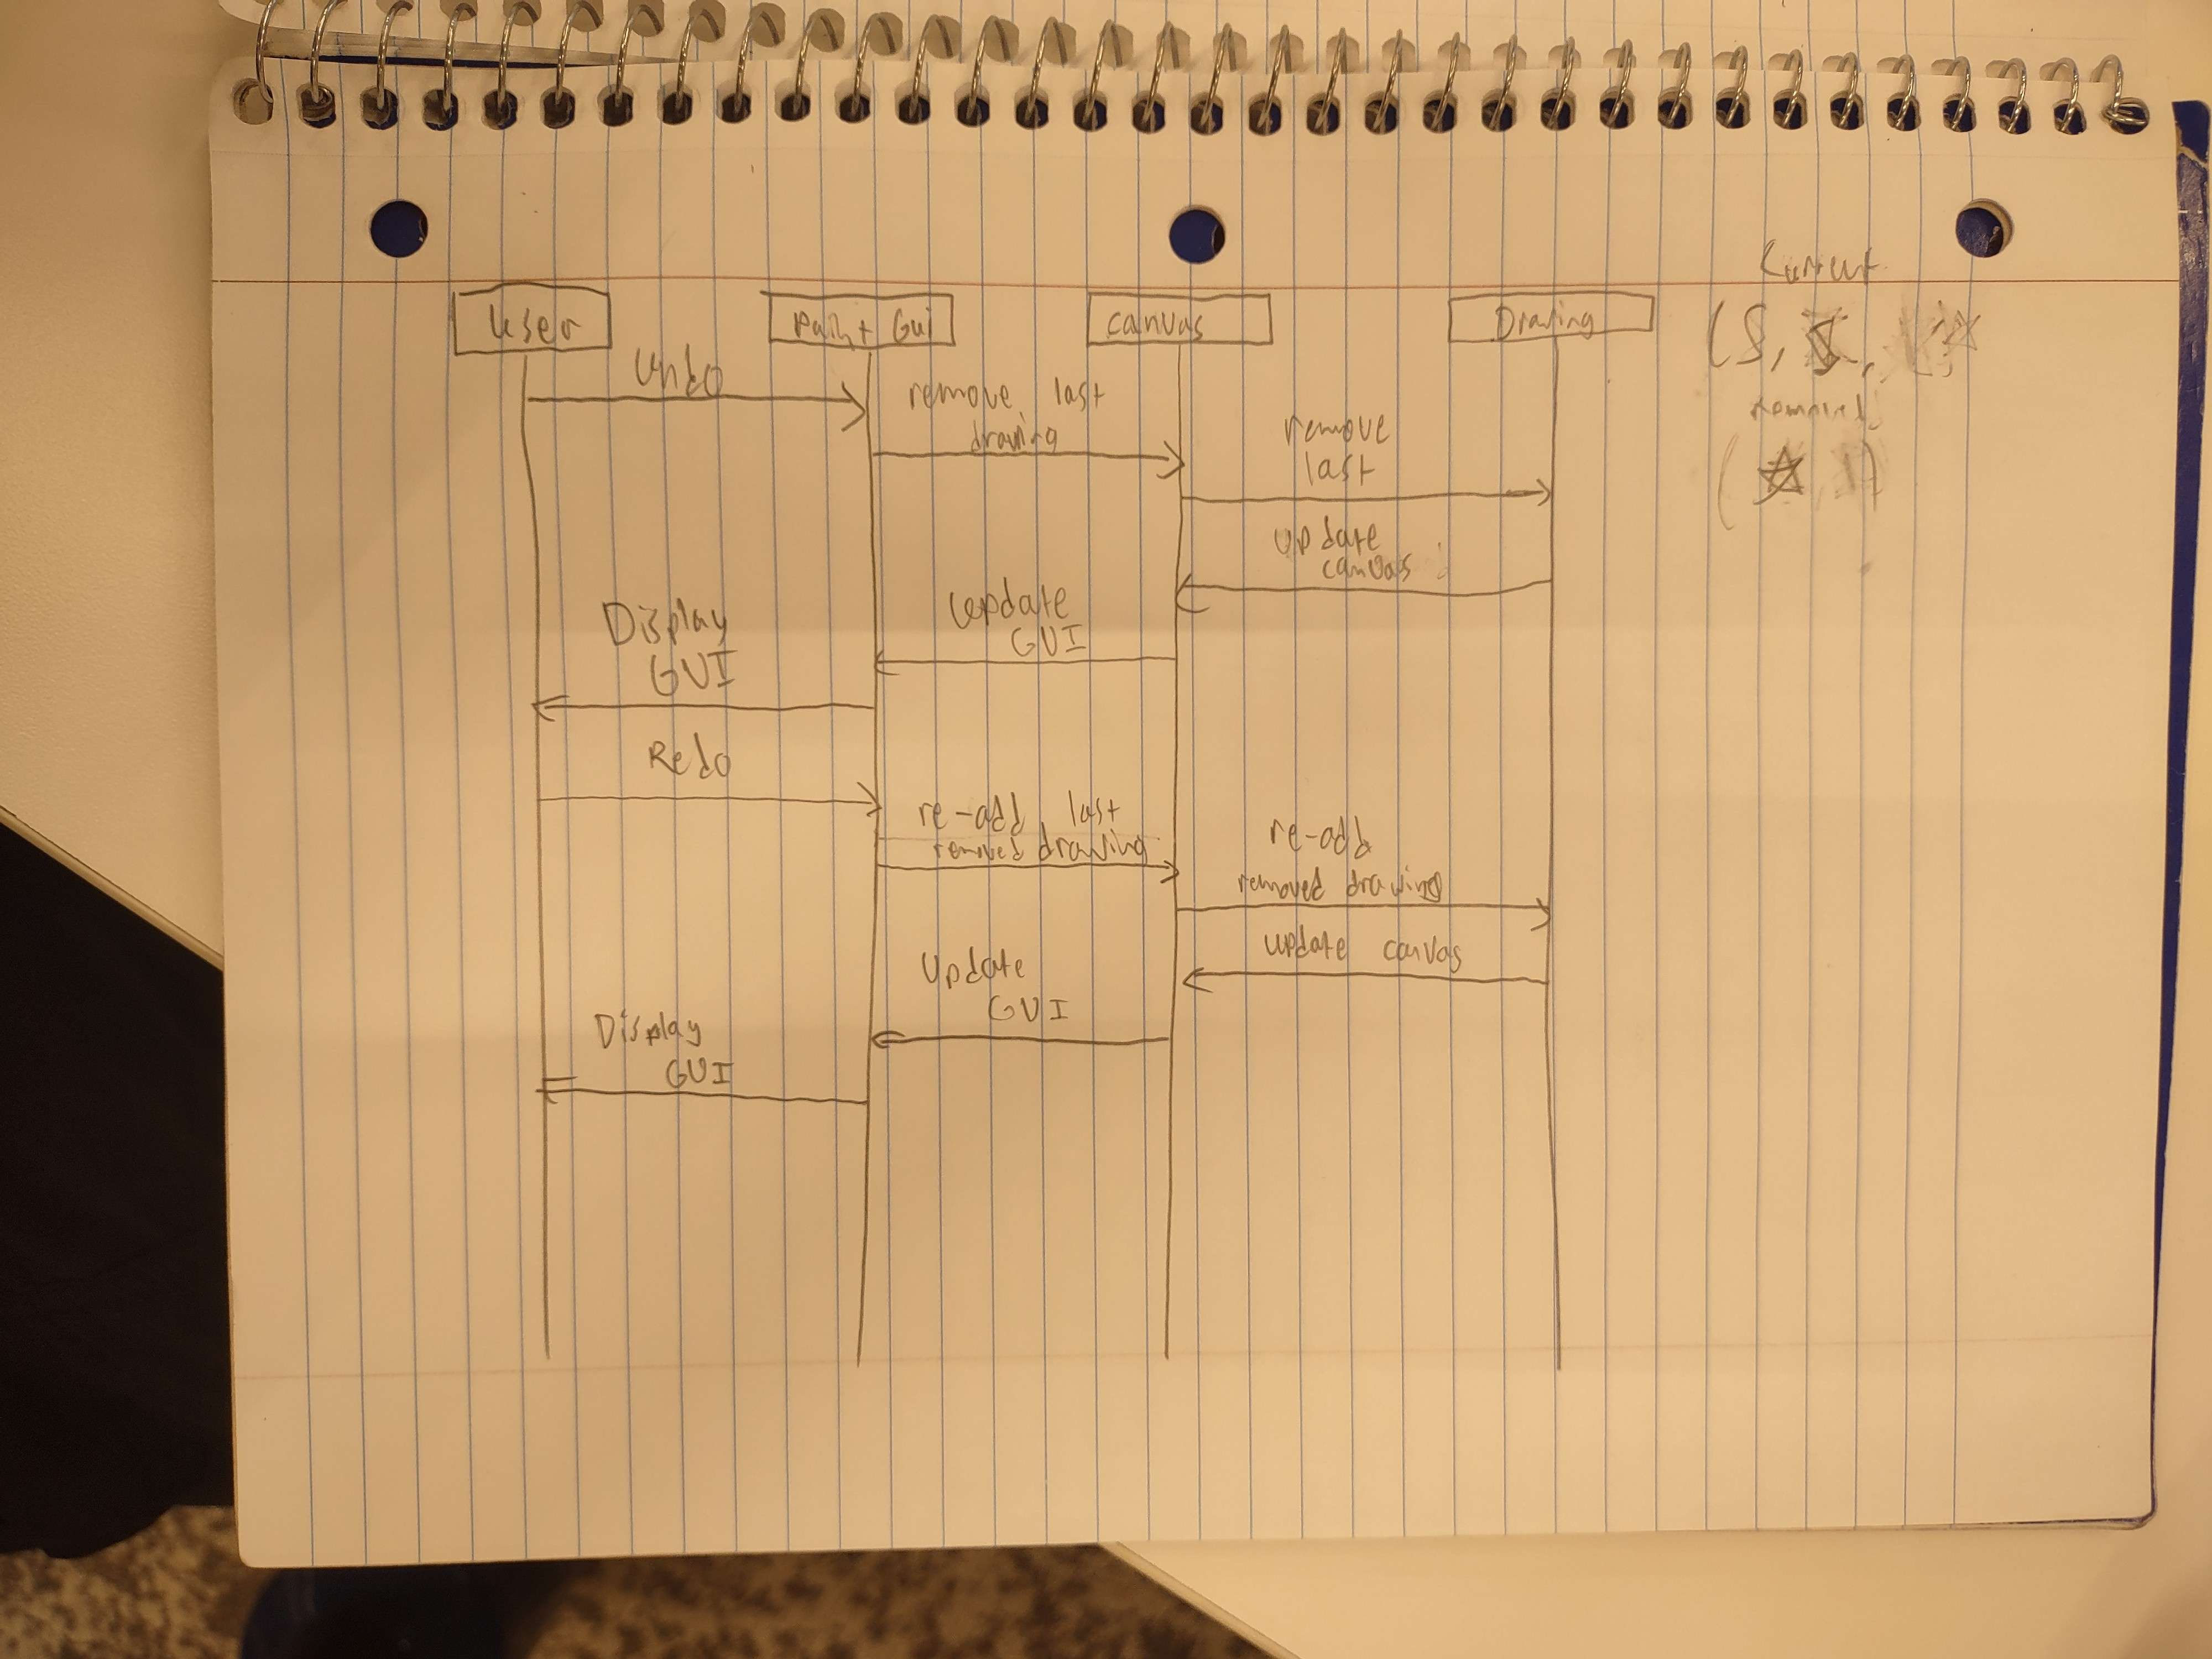 User
Paint Gui
canvas
Drawing
Current
Undo
remove last
drawing
remove
last
removed
update
canvas
Update
GUI
Display
GUI
Redo
re-add last
removed drawing
re-add
removed drawing
update canvas
Update
GUI
Display
GUI